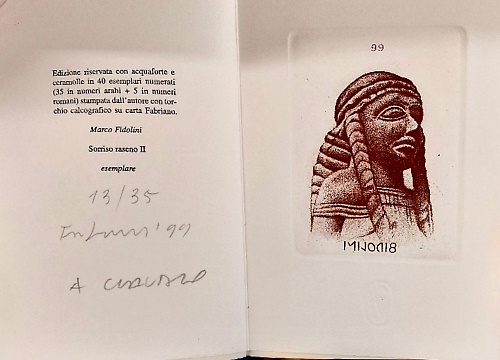 Edizione riservata con acquaforte e
ceramolle in 40 esemplari numerati
(35 in numeri arabi + 5 in numeri
romani) stampata dall'autore con tor-
chio calcografico su carta Fabriano.
Marco Fidolini
Sorriso raseno II
esemplare
13/35
'99
A
99